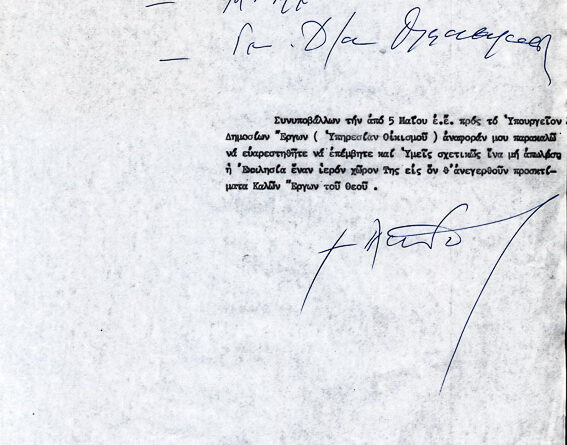 Γεν. Δ/σιν
Συνυποβάλλων τήν ἀπό 5 Μαΐου ἐ.ἔ. πρός τό Ὑπουργεῖον
Δημοσίων Ἔργων ( Ὑπηρεσίαν Οἰκισμοῦ ) ἀναφοράν μου παρακαλῶ
νά εὐαρεστηθῆτε νά ἐπέμβητε καί Ὑμεῖς σχετικῶς ἵνα μή ἀπωλέσῃ
ἡ Ἐκκλησία ἕναν ἱερόν χῶρον Της εἰς ὅν θ'ἀνεγερθοῦν προσκτί-
ματα Καλῶν Ἔργων τοῦ Θεοῦ .